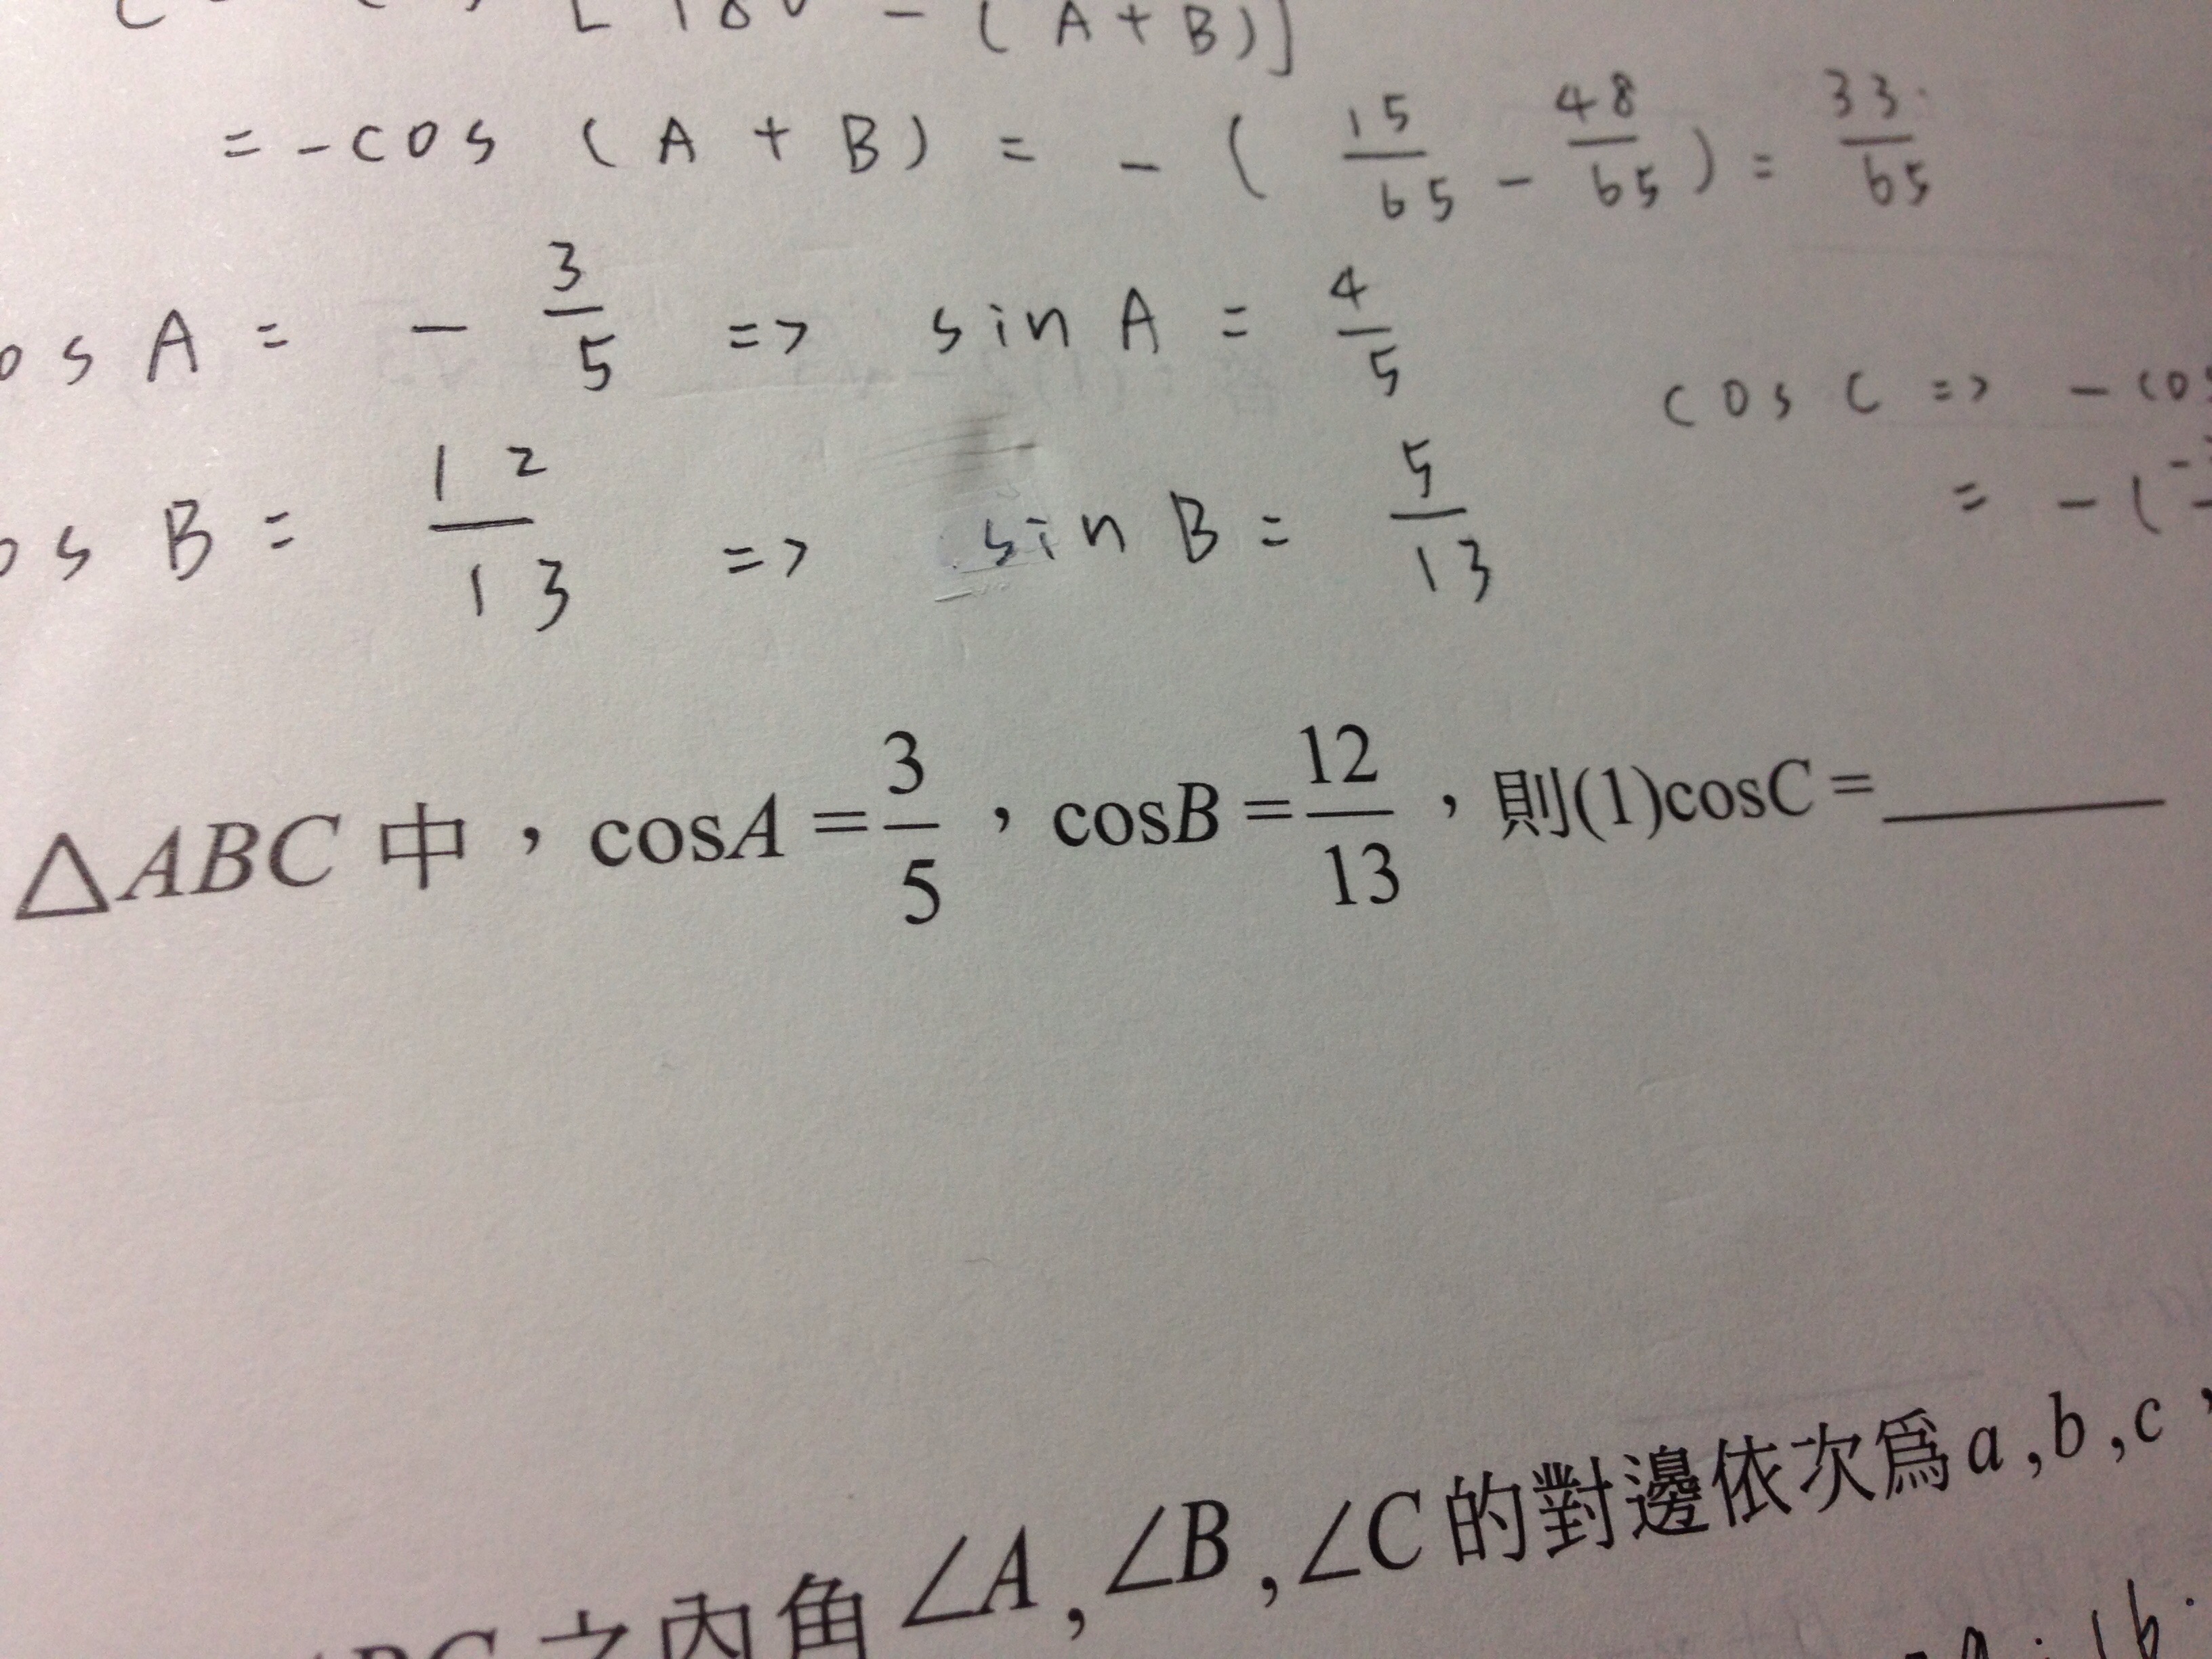 [180 - (A+B)]
= -cos (A + B) = - ( 15/65 - 48/65 ) = 33/65
os A = - 3/5 => sin A = 4/5
cos C => - cos
os B = 12/13 => sin B = 5/13
= - ( -
△ABC 中，cosA = 3/5，cosB = 12/13，則(1)cosC = ______
之內角∠A,∠B,∠C的對邊依次爲a,b,c，